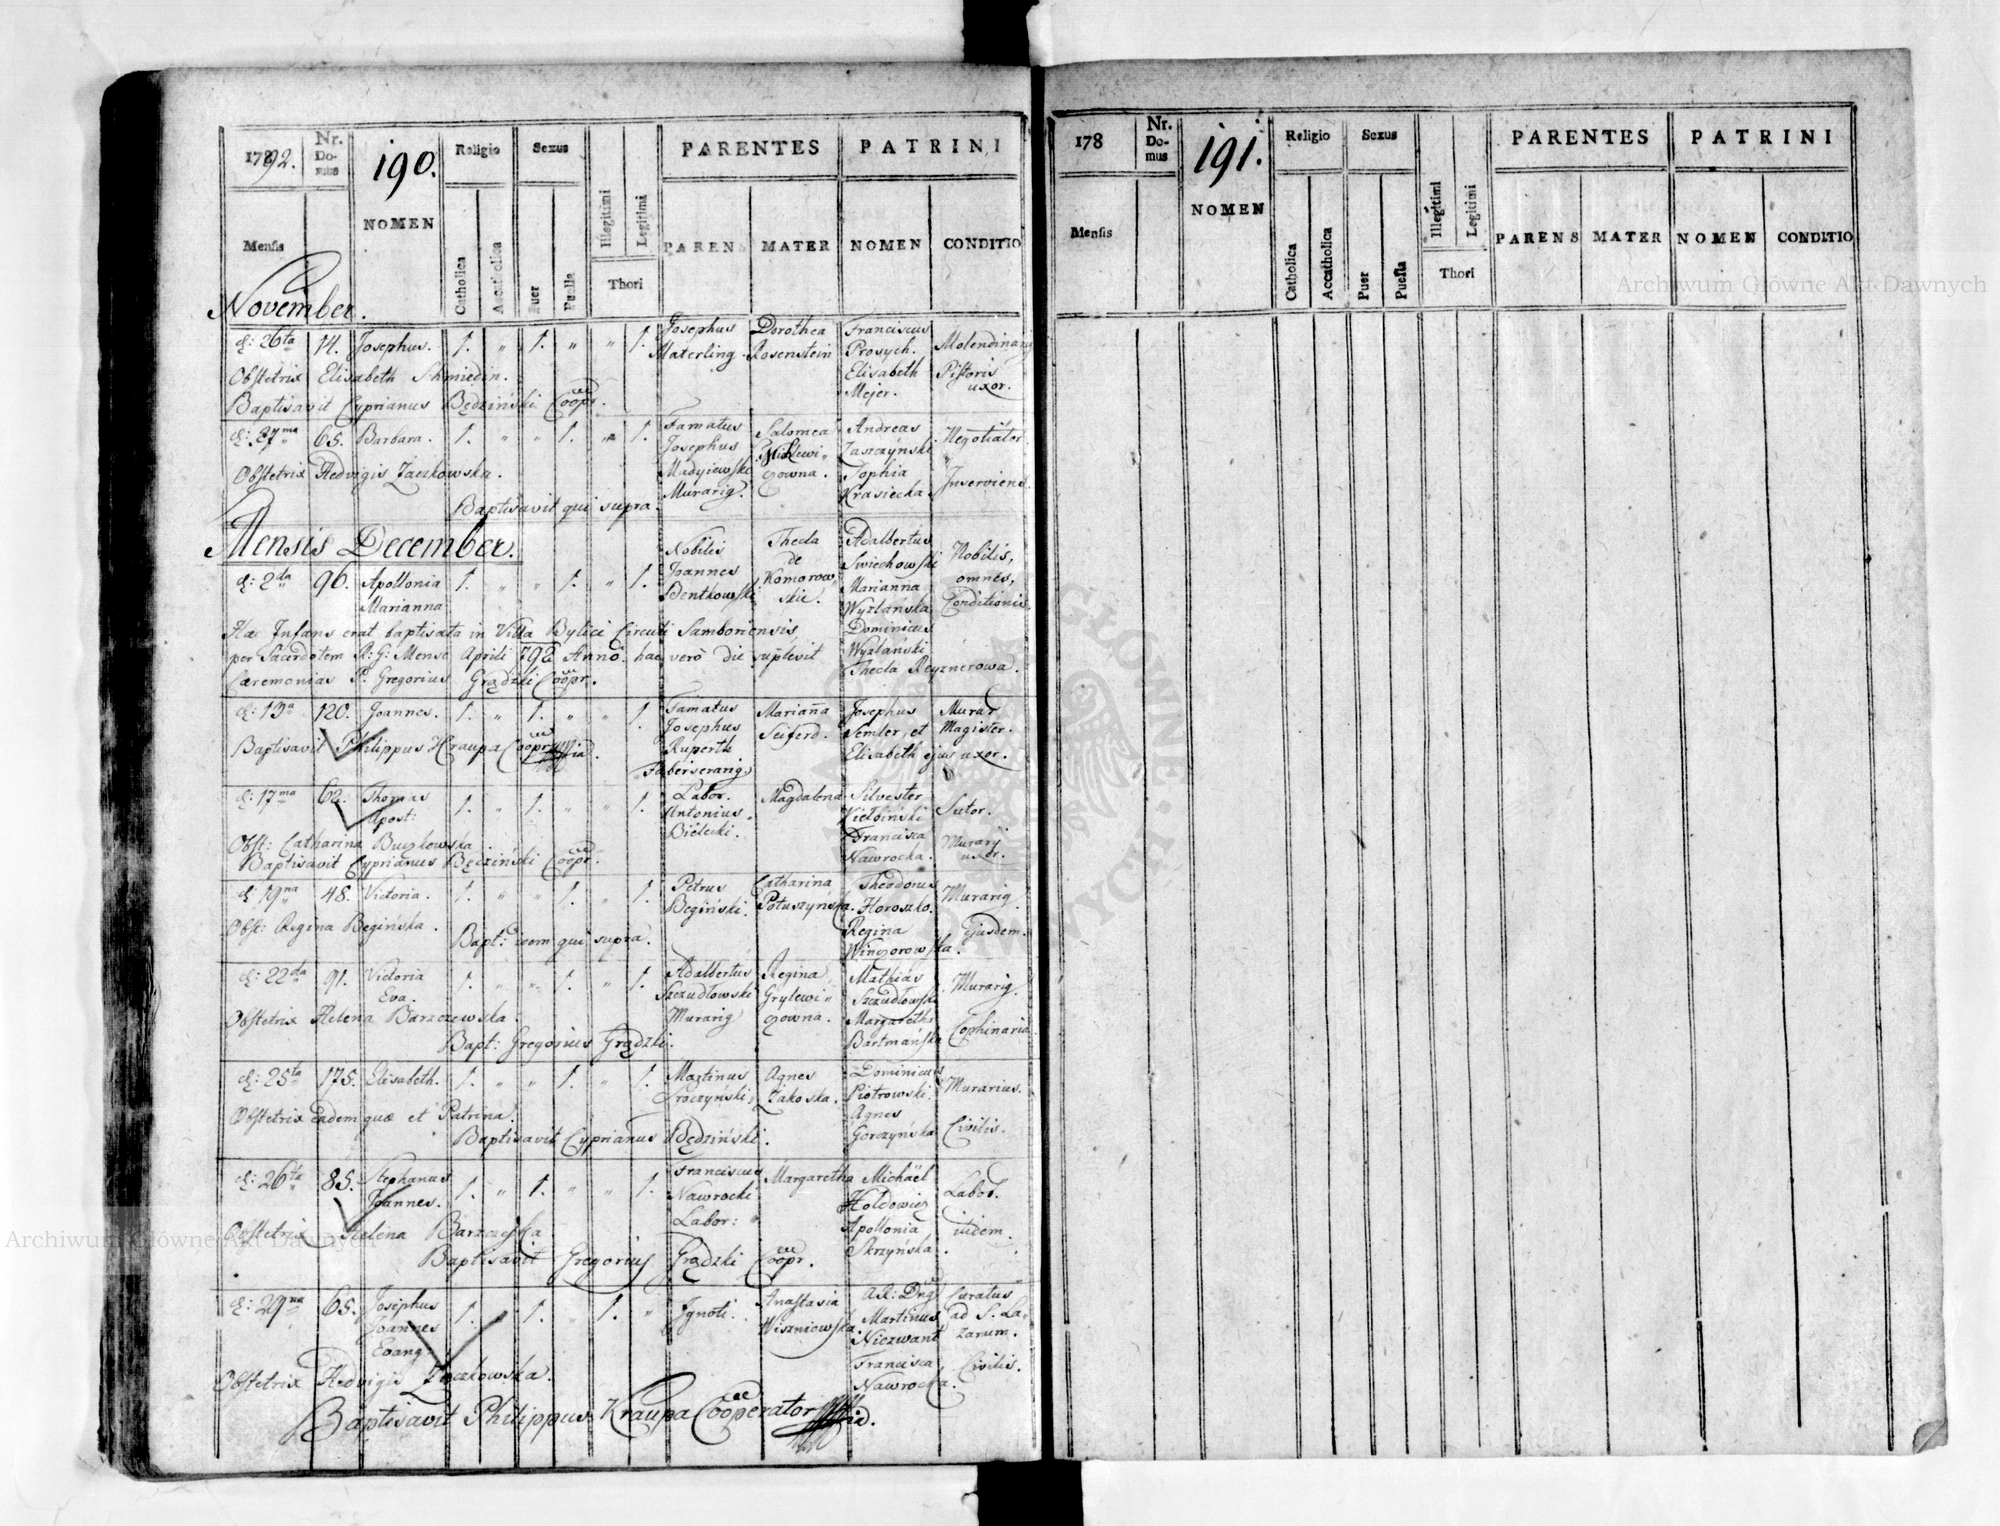 1792.
Nr. Domus
190.
NOMEN
Religio
Sexus
PARENTES
PATRINI
Mensis
Catholica
Accatholica
Puer
Puella
Illegitimi
Legitimi
Thori
PARENS
MATER
NOMEN
CONDITIO
November.
d: 26ta 14. Josephus. 1. " 1. " " 1. Josephus Dorothea Franciscus Molendinarius
Materling. Rosenstein Prosych.
Obstetrix Elisabeth Shmiedin. Elisabeth Pistoris
Mejer. uxor.
Baptisavit Cyprianus Będziński Coopr.
d: 27ma 65. Barbara. 1. " " 1. " 1. Famatus Salomea Andreas Negotiator.
Josephus Zaszczyński
Obstetrix Hedvigis Zaczkowska. Madyiewski czowna. Sophia Inserviens
Murarig. Krasiecka.
Baptisavit qui supra.
Mensis December.
d: 2da 96. Apollonia 1. " " 1. " 1. Nobilis Thecla Adalbertus Nobilis,
Marianna Joannes de Swiechowski omnes,
Bentkowski Komorowskie. Marianna Conditionis.
Wyzlańska
Hac Infans erat baptisata in Villa Bylici Circuli Samboriensis Dominicus
per Sacerdotem R: G: Mense Aprili 792 Anno. hac verò die suplevit Wyzlański
Cæremonias P. Gregorius Grądzki Coopr. Thecla Reyznerowa.
d: 13a 120. Joannes. 1. " 1. " " 1. Famatus Marianna Josephus Murar
Josephus Seiferd. Semler, et Magister.
Baptisavit Philippus Kraupa Coopr Ruperth Elisabeth ejus uxor.
Faberserarig
d: 17ma 62. Thomas 1. " 1. " " 1. Labor. Magdalena Silvester Sutor.
Apost: Antonius Wielbiński
Bielecki. Francisca Murarij
Obst: Catharina Buczkowska. Nawrocka. uxor.
Baptisavit Cyprianus Będziński Coopr.
d: 19na 48. Victoria. 1. " " 1. " 1. Petrus Catharina Theodorus Murarig
Begiński. Potuszyńska. Horoszko.
Obst: Regina Begińska. Regina ejusdem.
Bapt: idem qui supra. Winczorowska.
d: 22da 91. Victoria 1. " " 1. " 1. Adalbertus Regina Mathias Murarig.
Eva. Szczudłowski Grylewi" Szczudłowski
Obstetrix Helena Barzczewska. Murarig czowna. Margareth Cophinaria
Bapt: Gregorius Grądzki. Bartmańska
d: 25ta 175. Elisabeth. 1. " " 1. " 1. Martinus Agnes Dominicus Murarius.
Kroczyński; Zakoska. Piotrowski.
Obstetrix Eadem quæ et Patrina. Agnes
Baptisavit Cyprianus Będziński. Gorczyńska Civilis.
d: 26ta 85. Stephanus 1. " 1. " " 1. Franciscus Margaretha Michaël Labor.
Joannes. Nawrocki Holdowicz
Obstetrix Helena Barzczeska Labor: Apollonia iidem.
Baptisavit Gregorius Grądzki Coopr. Skrzyńska.
d: 29na 65. Josephus 1. " 1. " 1. " Ignoti. Anastasia Curatus
Joannes Wiszniowska. Martinus ad S. La-
Evang. Niezwant zarum.
Obstetrix Hedvigis Zaczkowska. Francisca Civilis.
Nawrocka.
Baptisavit Philippus Kraupa Cooperator
178
Nr. Domus
191.
NOMEN
Religio
Sexus
PARENTES
PATRINI
Mensis
Catholica
Accatholica
Puer
Puella
Illegitimi
Legitimi
Thori
PARENS
MATER
NOMEN
CONDITIO
Archiwum Główne Akt Dawnych
Archiwum Główne Akt Dawnych